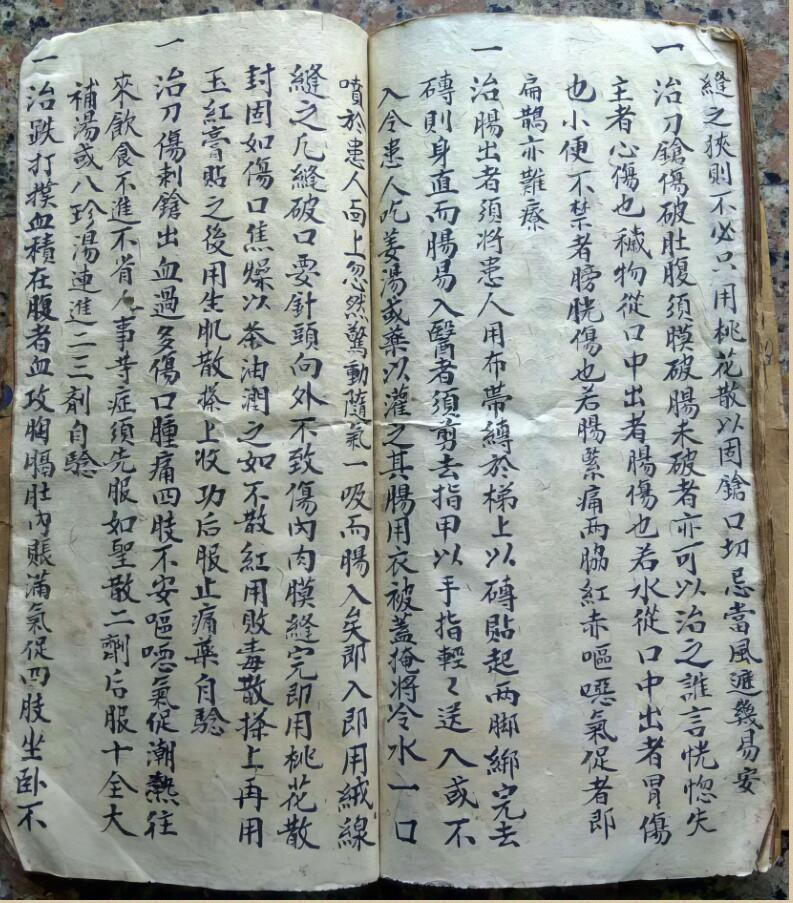 縫之狹則不必只用桃花散以固鎗口切忌當風遮幾易安
一治刀鎗傷破肚腹須膜破腸未破者亦可以治之誰言恍惚失
主者心傷也穢物從口中出者腸傷也若水從口中出者胃傷
也小便不禁者膀胱傷也若腸縈痛兩脇紅赤嘔噁氣促者即
扁鵲亦難療
一治腸出者須將患人用布帶縛於梯上以磚貼起两脚綁完去
磚則身直而腸易入醫者須剪去指甲以手指輕々送入或不
入令患人吃姜湯或藥以灌之其腸用衣被蓋掩將冷水一口
噴於患人面上忽然驚動隨氣一吸而腸入矣即入即用絨線
縫之凡縫破口要針頭向外不致傷內肉膜縫完即用桃花散
封固如傷口焦燥以茶油潤之如不散紅用敗毒散搽上再用
玉紅膏貼之後用生肌散搽上收功后服止痛藥自驗
一治刀傷刺鎗出血過多傷口腫痛四肢不安嘔噁氣促潮熱往
來飲食不進不省人事等症須先服如聖散二劑后服十全大
補湯或八珍湯連進二三劑自驗
一治跌打撲血積在腹者血攻胸膈肚內賬滿氣促四肢坐卧不